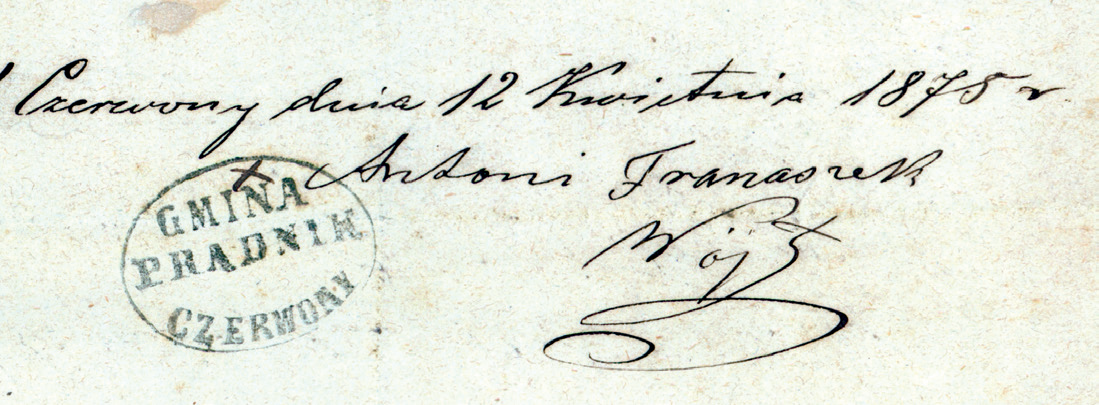 Czerwony dnia 12 Kwietnia 1875 r
x Antoni Franaszek
Wójt
GMINA
PRADNIK
CZERWONY